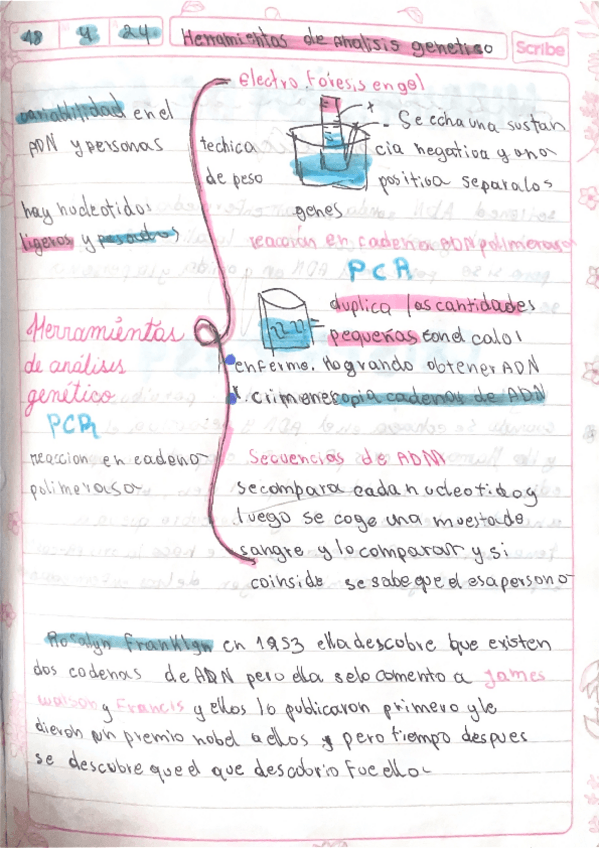 18 4 24 Herramientas de analisis genetico Scribe
electro foresis en gel
variabilidad en el
ADN y personas
hay nucleotidos
ligeros y pesados
techica
de peso
+
- Se echa una sustan
cia negativa y ono
positiva separa los
genes
reacción en cadena ADN polimerasa
PCR
duplica las cantidades
pequeñas con el calor
enfermo. Logrando obtener ADN
crimenes copia cadenas de ADN
Herramientas
de análisis
genético
PCR
reaccion en cadena
polimerasa
Secuencias de ADN
se compara cada nucleotido y
luego se coge una muesta de
sangre y lo comparar y si
coinside se sabe que el esa persona
Rosalyn Franklyn en 1953 ella descubre que existen
dos cadenas de ADN pero ella se lo comento a James
Watson y Francis y ellos lo publicaron primero y le
dieron un premio nobel a ellos y pero tiempo despues
se descubre que el que descobrio fue ella